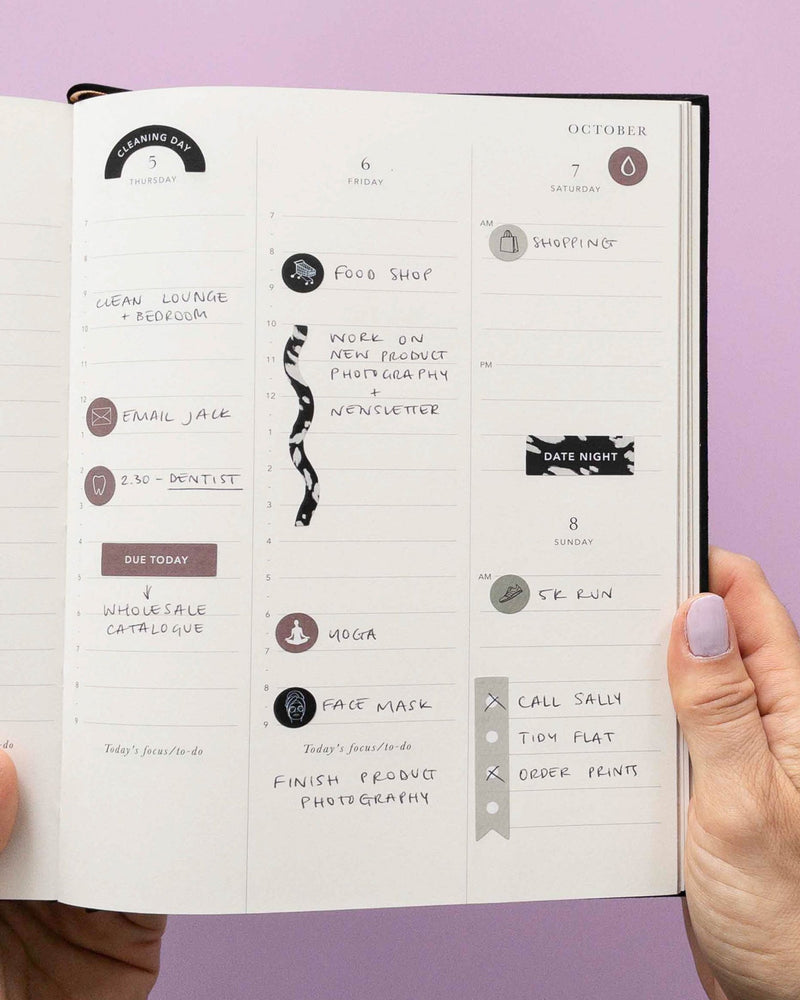 OCTOBER
CLEANING DAY
5
THURSDAY
7
8
9
CLEAN LOUNGE
+ BEDROOM
10
11
12
EMAIL JACK
1
2
2.30 - DENTIST
3
4
DUE TODAY
5
WHOLESALE
6
CATALOGUE
7
8
9
Today's focus/to-do
6
FRIDAY
7
8
FOOD SHOP
9
10
WORK ON
NEW PRODUCT
11
PHOTOGRAPHY
+
12
NEWSLETTER
1
2
3
4
5
6
YOGA
7
8
FACE MASK
9
Today's focus/to-do
FINISH PRODUCT
PHOTOGRAPHY
7
SATURDAY
AM
SHOPPING
PM
DATE NIGHT
8
SUNDAY
AM
5K RUN
CALL SALLY
TIDY FLAT
ORDER PRINTS
-do